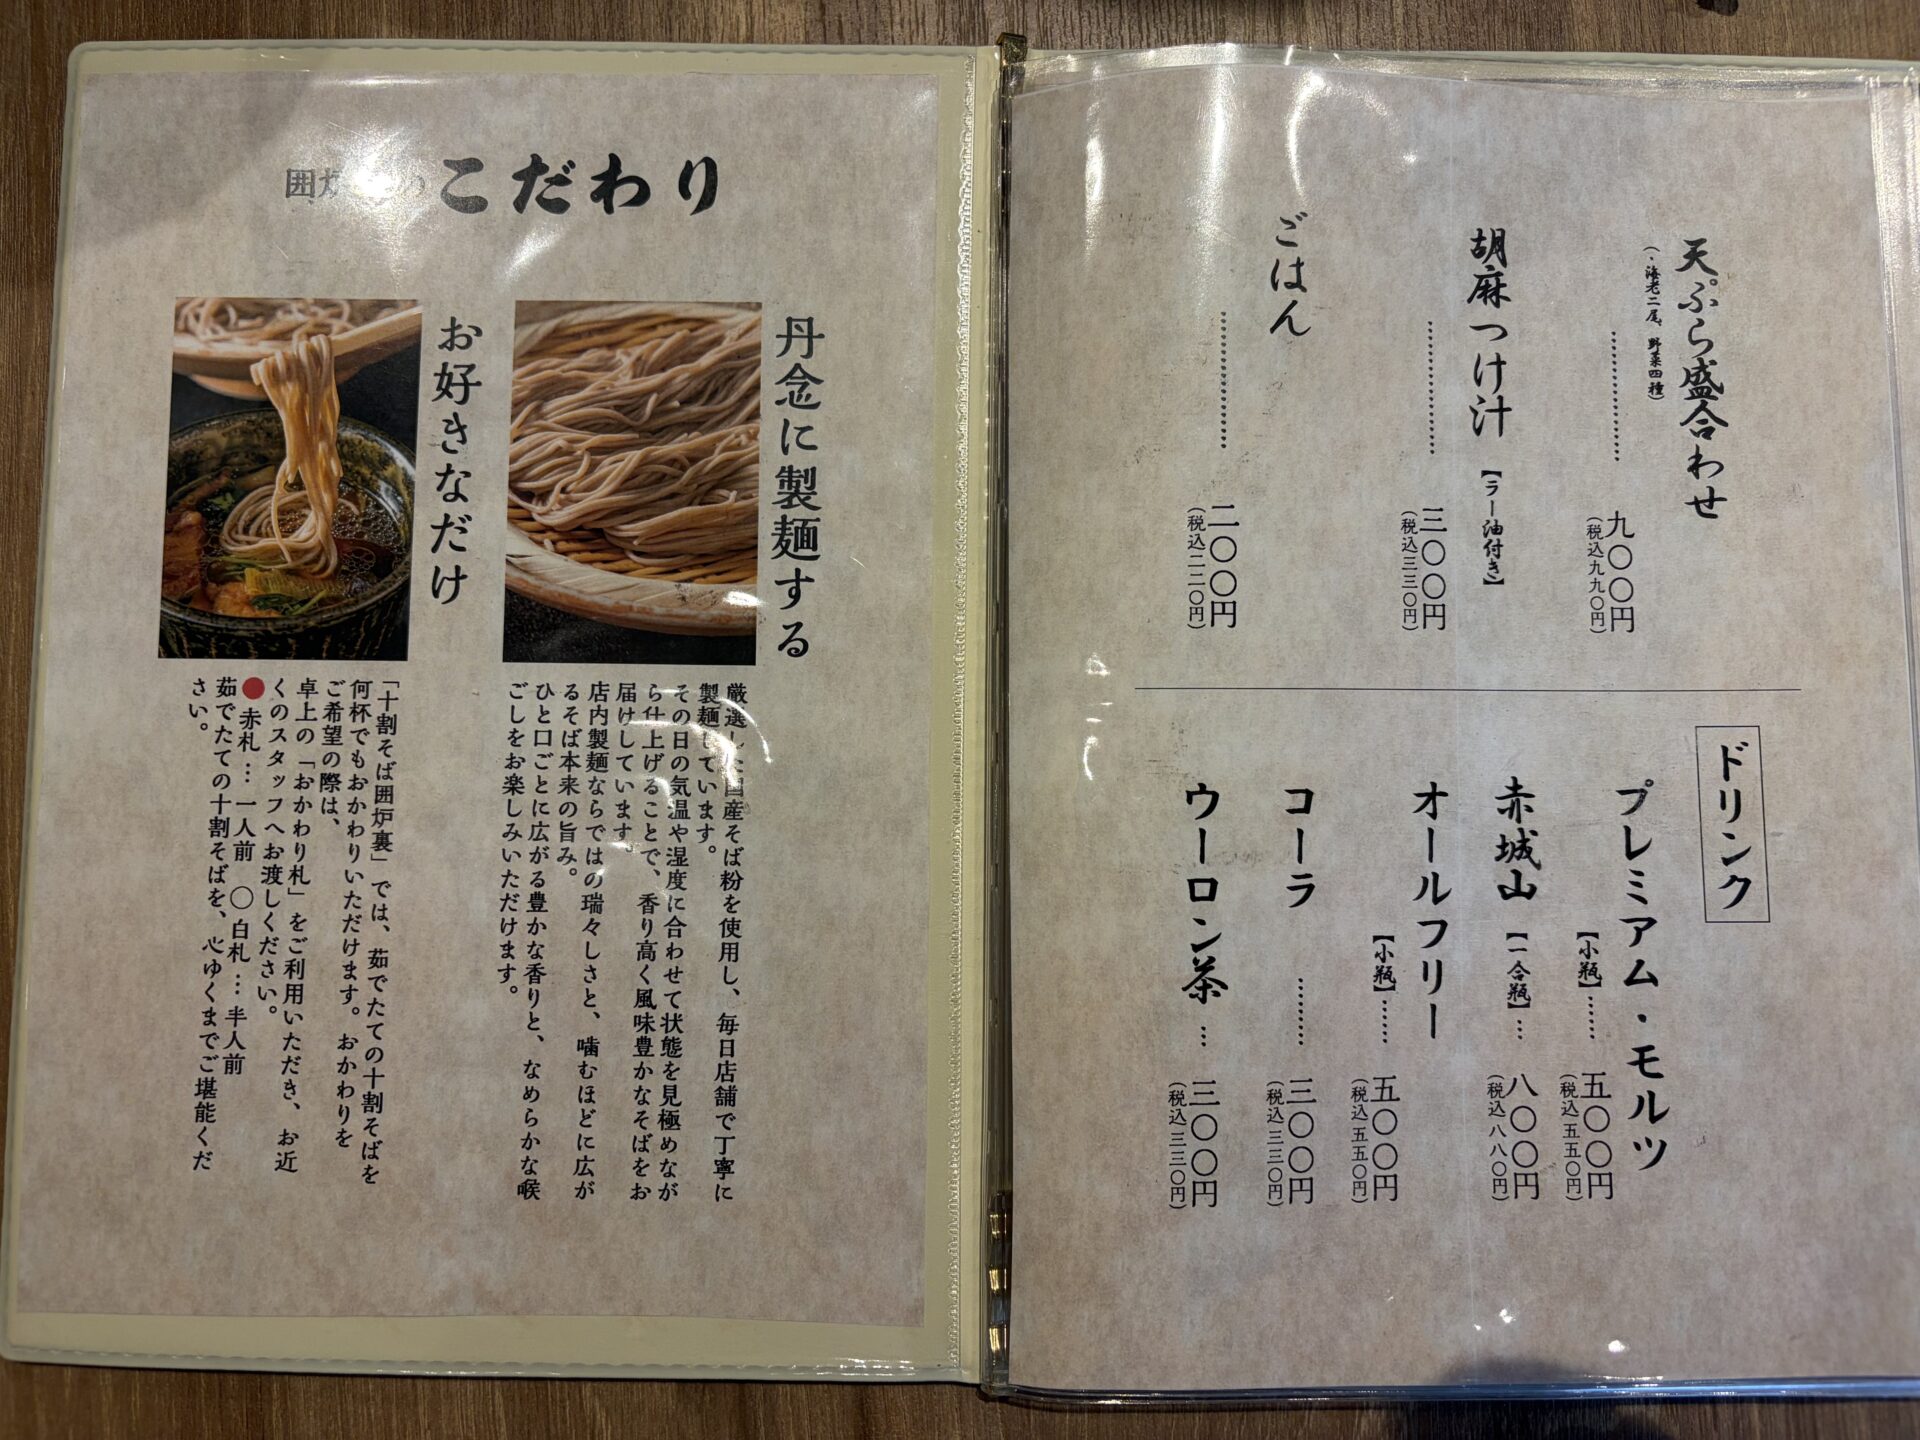 囲炉裏のこだわり
丹念に製麺する
厳選した国産そば粉を使用し、毎日店舗で丁寧に
製麺しています。
その日の気温や湿度に合わせて状態を見極めなが
ら仕上げることで、香り高く風味豊かなそばをお
届けしています。
店内製麺ならではの瑞々しさと、噛むほどに広が
るそば本来の旨み。
ひと口ごとに広がる豊かな香りと、なめらかな喉
ごしをお楽しみいただけます。
お好きなだけ
「十割そば囲炉裏」では、茹でたての十割そばを
何杯でもおかわりいただけます。おかわりを
ご希望の際は、
卓上の「おかわり札」をご利用いただき、お近
くのスタッフへお渡しください。
●赤札…一人前 ○白札…半人前
茹でたての十割そばを、心ゆくまでご堪能くだ
さい。
天ぷら盛合わせ
(・海老二尾、野菜四種)
……………… 九〇〇円
(税込九九〇円)
胡麻つけ汁【ラー油付き】
……………… 三〇〇円
(税込三三〇円)
ごはん
……………… 二〇〇円
(税込二二〇円)
ドリンク
プレミアム・モルツ
【小瓶】…… 五〇〇円
(税込五五〇円)
赤城山【一合瓶】… 八〇〇円
(税込八八〇円)
オールフリー
【小瓶】…… 五〇〇円
(税込五五〇円)
コーラ ……… 三〇〇円
(税込三三〇円)
ウーロン茶 … 三〇〇円
(税込三三〇円)